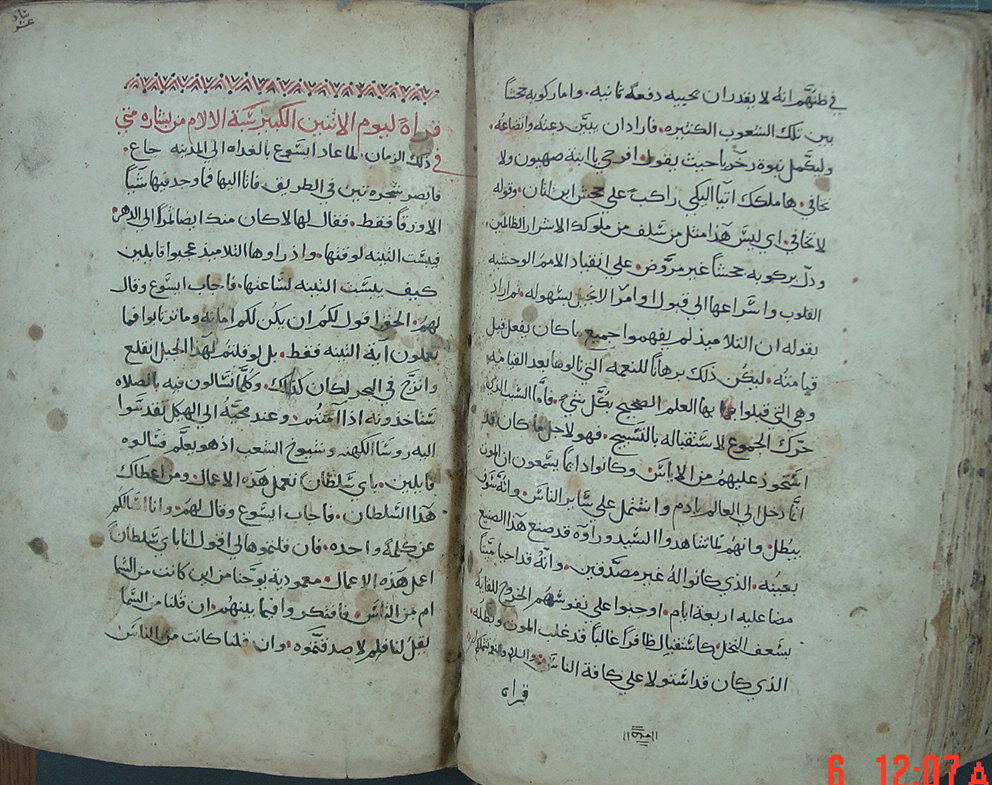 في ظنهم انه لا يقدر ان يحييه دفعة ثانيه. واما ركوبه جحشاً
بين تلك الشعوب الكثيره. فارادان يبين دعته واتضاعه.
وليكمل نبوة زخريا حيث يقول افرحي يا ابنة صهيون ولا
تخافي. ها ملكك اتيا اليكي راكب علي جحش ابن اتان. وقوله
لا تخافي. اي ليس هذا مثل من سلف من ملوكك الاشرار الظالمين.
ودل بركوبه جحشاً غير مروض. علي انقياد الامم الوحشيه
القلوب واسراعها الي قبول اوامر الانجيل بسهوله. ثم اراد
بقوله ان التلاميذ لم يفهموا جميع ما كان يفعل قبل
قيامته. ليكون ذلك برهاناً للنعمه التي نالوها بعد القيامه.
وهي التي قبلوا بها العلم الصحيح بكل شي. فاما السبب الذي
حرك الجموع لاستقباله بالتسبيح. فهو لاجل ما كان قد
استحوذ عليهم من الاياس. وكانوا دايماً يسمعون ان الموت
انما دخل الي العالم بادم واشتمل علي ساير الناس. وانه سوف
يبطل. وانهم لما شاهدوا السيد وراوه قد صنع هذا الصنيع
بعينه. الذي كانوا له غير مصدقين. وانه قد احيا ميتاً
مضا عليه اربعة ايام. اوجبوا علي نفوسهم الخروج للقايه
بسعف النخل. كاستقبال الظافر غالباً قد غلب الموت وبطله.
الذي كان قد استولا علي كافة الناس.
قراه
قراة ليوم الاثنين الكبير سبة الالام من بشاره متي
في ذلك الزمان. لما عاد ايسوع بالغداه الي المدينه جاع.
فابصر شجره تين في الطريق فاتا اليها فما وجد فيها شياً
الا ورقاً فقط. فقال لها لا كان منك ايضا ثمراً الي الدهر.
فيبست التينه لوقتها. واذ راوها التلاميذ عجبوا قايلين
كيف يبست التينه لساعتها. فاجاب ايسوع وقال
لهم. الحق اقول لكم ان يكن لكم امانه وما ترتابوا فما
تعملون اية التينه فقط. بل لو قلتم لهذا الجبل انقلع
وانزج في البحر لكان كذلك. وكلما تسالون فيه بالصلاه
ستاخذونه اذا امنتم. وعند مجيه الي الهيكل تقدموا
اليه روسا الكهنه وشيوخ الشعب اذ هو يعلم فسالوه
قايلين. باي سلطان تعمل هذه الاعمال ومن اعطاك
هذا السلطان. فاجاب ايسوع وقال لهم. وانا اسالكم
عن كلمة واحده. فان قلتموها لي اقول انا باي سلطان
اعمل هذه الاعمال. معموديه يوحنا من اين كانت من السما
ام من الناس. فافتكروا فيما بينهم. ان قلنا من السما
يقل لنا فلم لا صدقتموه. وان قلنا كانت من الناس